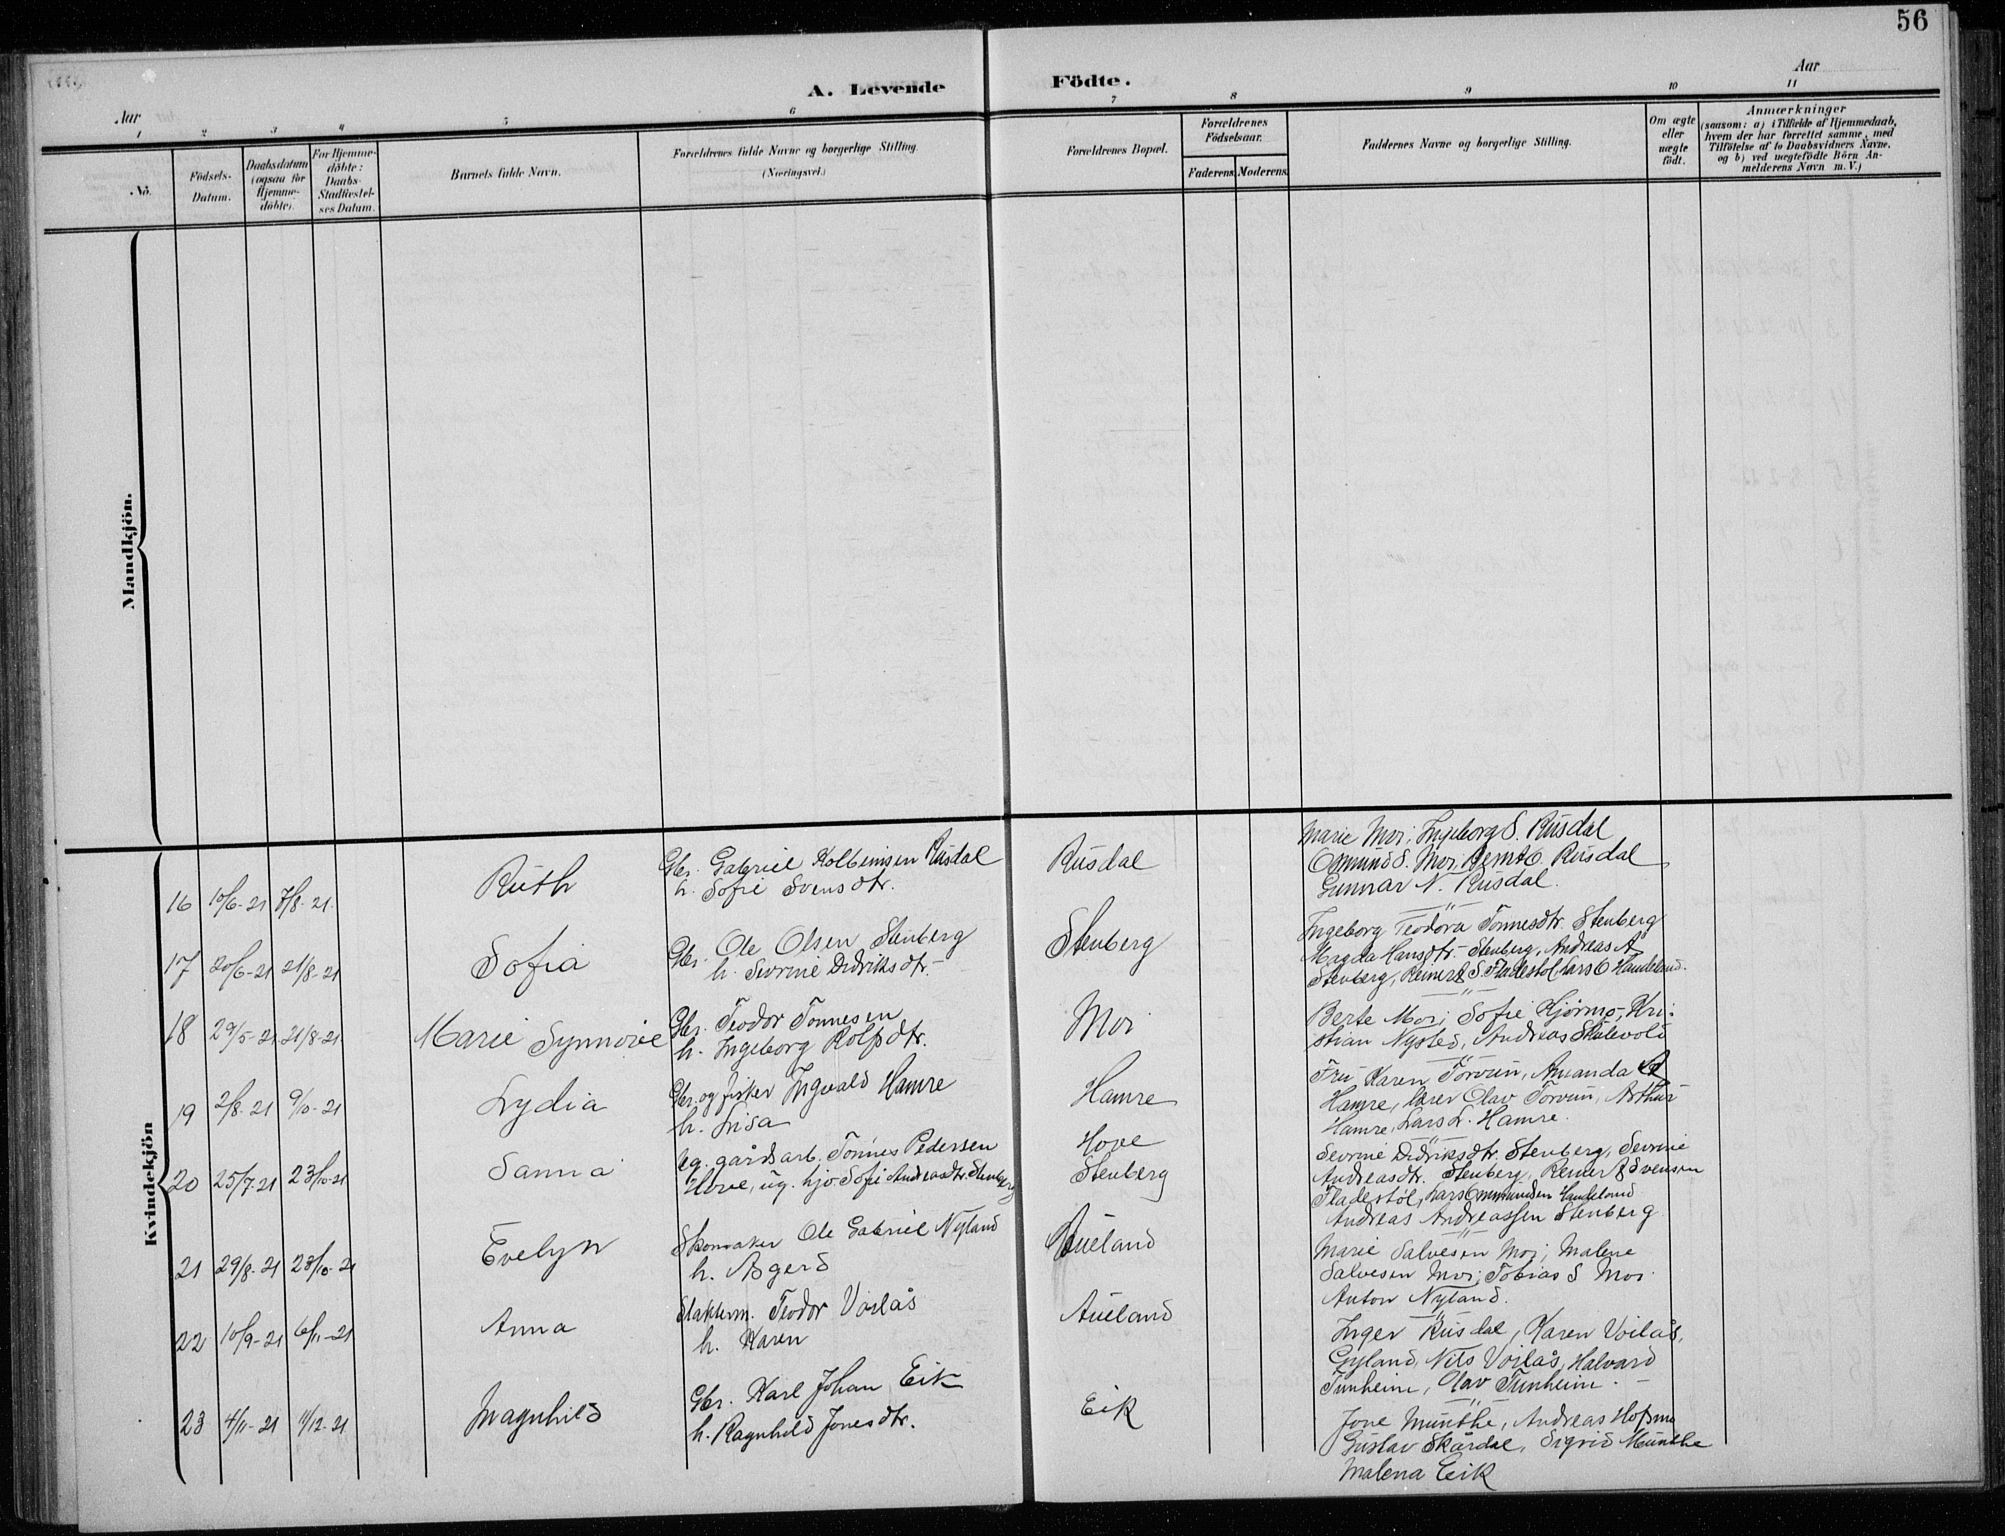 56
A. Levende Födte.
Aar
Aar
1 2 3 4 5 6 7 8 9 10 11
No.
Födsels-
Datum.
Daabsdatum
(ogsaa for
Hjemme-
döbte).
For Hjemme-
döbte:
Daabs-
Stadfæstel-
ses Datum.
Barnets fulde Navn.
Forældrenes fulde Navne og borgerlige Stilling.
(Næringsvei.)
Forældrenes Bopæl.
Forældrenes
Födselsaar.
Faderens Moderens
Faddernes Navne og borgerlige Stilling.
Om ægte
eller
uægte
födt.
Anmærkninger
(saasom: a) i Tilfælde af Hjemmedaab,
hvem der har forrettet samme, med
Tilföielse af to Daabsvidners Navne,
og b) ved uægtefödte Börn An-
melderens Navn m. V.)
Mandkjön.
Kvindekjön
16 10/6-21 7/8-21
Ruth
Gbr. Gabriel Kolbeinsen Rusdal
h. Sofie Svensdtr.
Rusdal
Marie Moi; Ingeborg S. Rusdal
Osmund S. Moi, Bernt O. Rusdal
Gunnar N. Rusdal.
17 20/6-21 21/8-21
Sofia
Gbr. Ole Olsen Stenberg
h. Sevrine Didriksdtr.
Stenberg
Ingeborg Teodora Tonnesdtr. Stenberg
Magda Hansdtr. Stenberg, Andreas A
Stenberg, Reinert S. Fladestøl Lars O Handeland.
18 29/5-21 21/8-21
Marie Synnøve
Gbr. Teodor Tonnesen
h. Ingeborg Rolfsdtr.
Moi
Berte Moi; Sofie Hjørmo, Kri-
stian Nysted, Andreas Skålevold
19 2/8-21 9/10-21
Lydia
Gbr. og fisker Ingvald Hamre
h. Lisa
Hamre
Fru Karen Torvun, Amanda A
Hamre, lærer Olav Torvun, Arthur
Hamre, Lars L. Hamre.
20 25/7-21 23/10-21
Sanna
ug. gårdsarb. Tønnes Pedersen
Hove, ug. hjo Sofie Andreasdtr. Stenberg
Hove
Stenberg
Sevrine Didriksdtr. Stenberg, Sevrine
Andreasdtr. Stenberg, Reinert Svensen
Fladestøl, Lars Ommundsen Handeland
Andreas Andreassen Stenberg
21 29/8-21 23/10-21
Evelyn
Skomaker Ole Gabriel Nyland
h. Asgerd
Aueland
Marie Salvesen Moi, Malene
Salvesen Moi; Tobias S Moi
Anton Nyland.
22 10/9-21 6/11-21
Anna
Slakterm. Teodor Voilås
h. Karen
Aueland
Inger Rusdal, Karen Voilås,
Gyland, Nils Voilås, Halvard
Tunheim, Olav Tunheim.
23 4/11-21 11/12-21
Magnhild
Gbr. Karl Johan Eik
h. Ragnhild Jonesdtr.
Eik
Jone Munthe, Andreas Hofsmo
Gustav Skårdal, Sigrid Munthe
Malena Eik